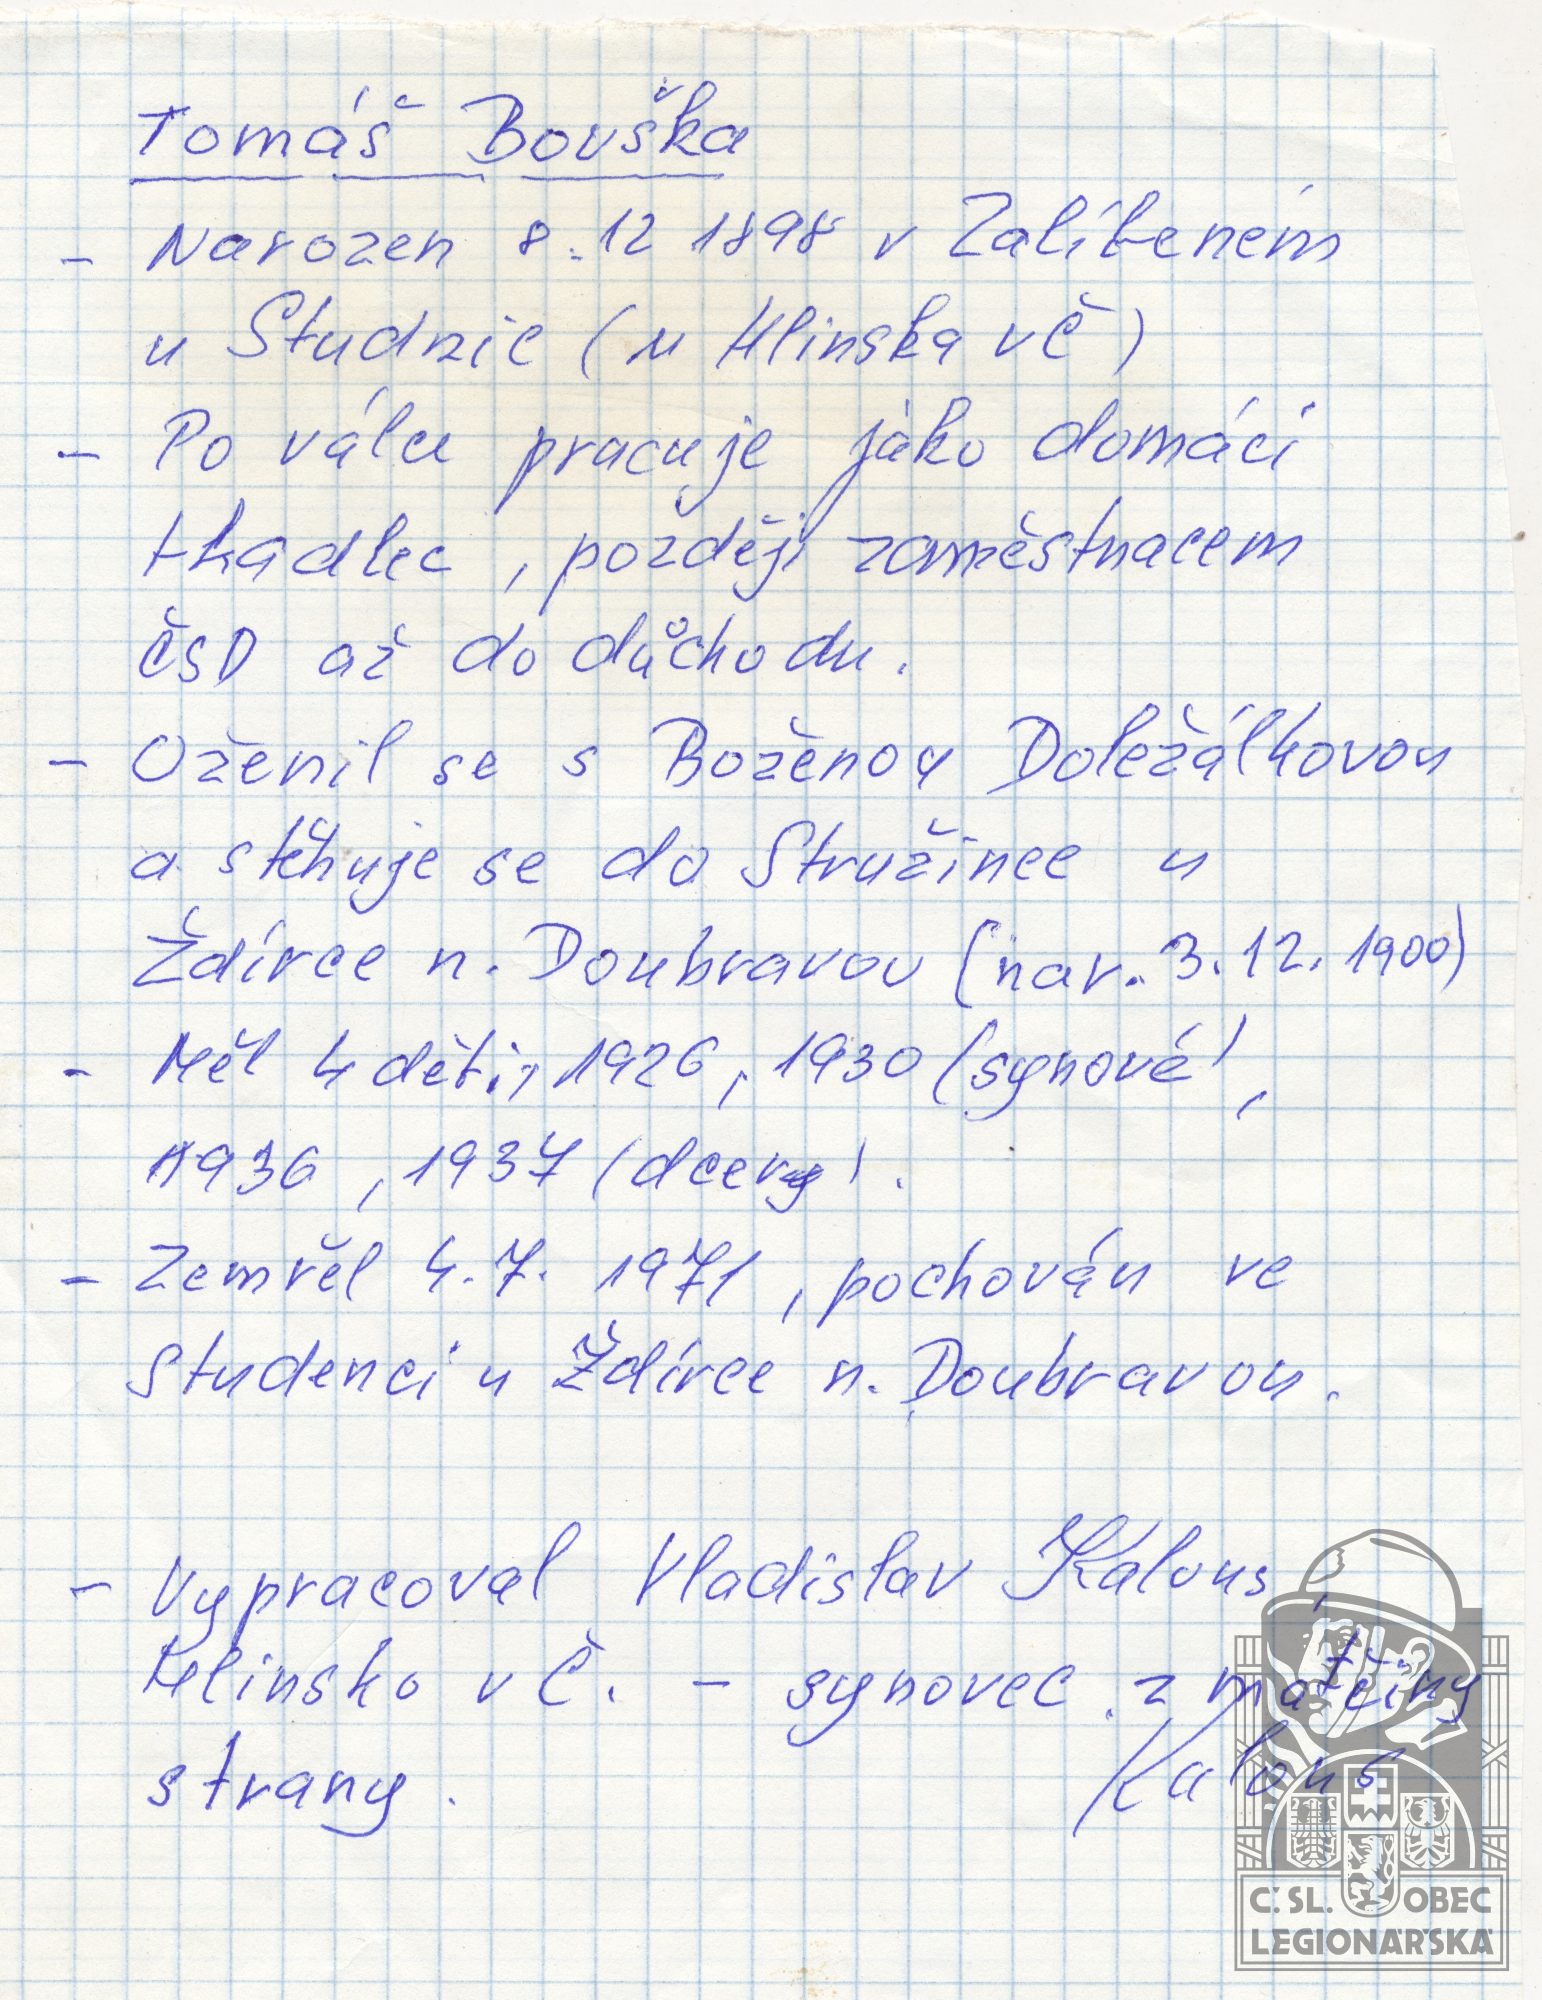 Tomáš Bouška
- Narozen 8.12 1898 v Zalíbeném
u Studnic (u Hlinska v Č)
- Po válce pracuje jako domácí
tkadlec, později zaměstnacem
ČSD až do důchodu.
- Oženil se s Boženou Doležálkovou
a stěhuje se do Stružince u
Ždírce n. Doubravou (nar. 3.12.1900)
- Měl 4 děti, 1926, 1930 (synové),
1936, 1937 (dcery).
- Zemřel 4.7. 1971, pochován ve
Studenci u Ždírce n. Doubravou.
- Vypracoval Vladislav Kalous,
Hlinsko v Č. - synovec z matčiny
strany.
Kalous
Č. SL. OBEC
LEGIONÁŘSKÁ